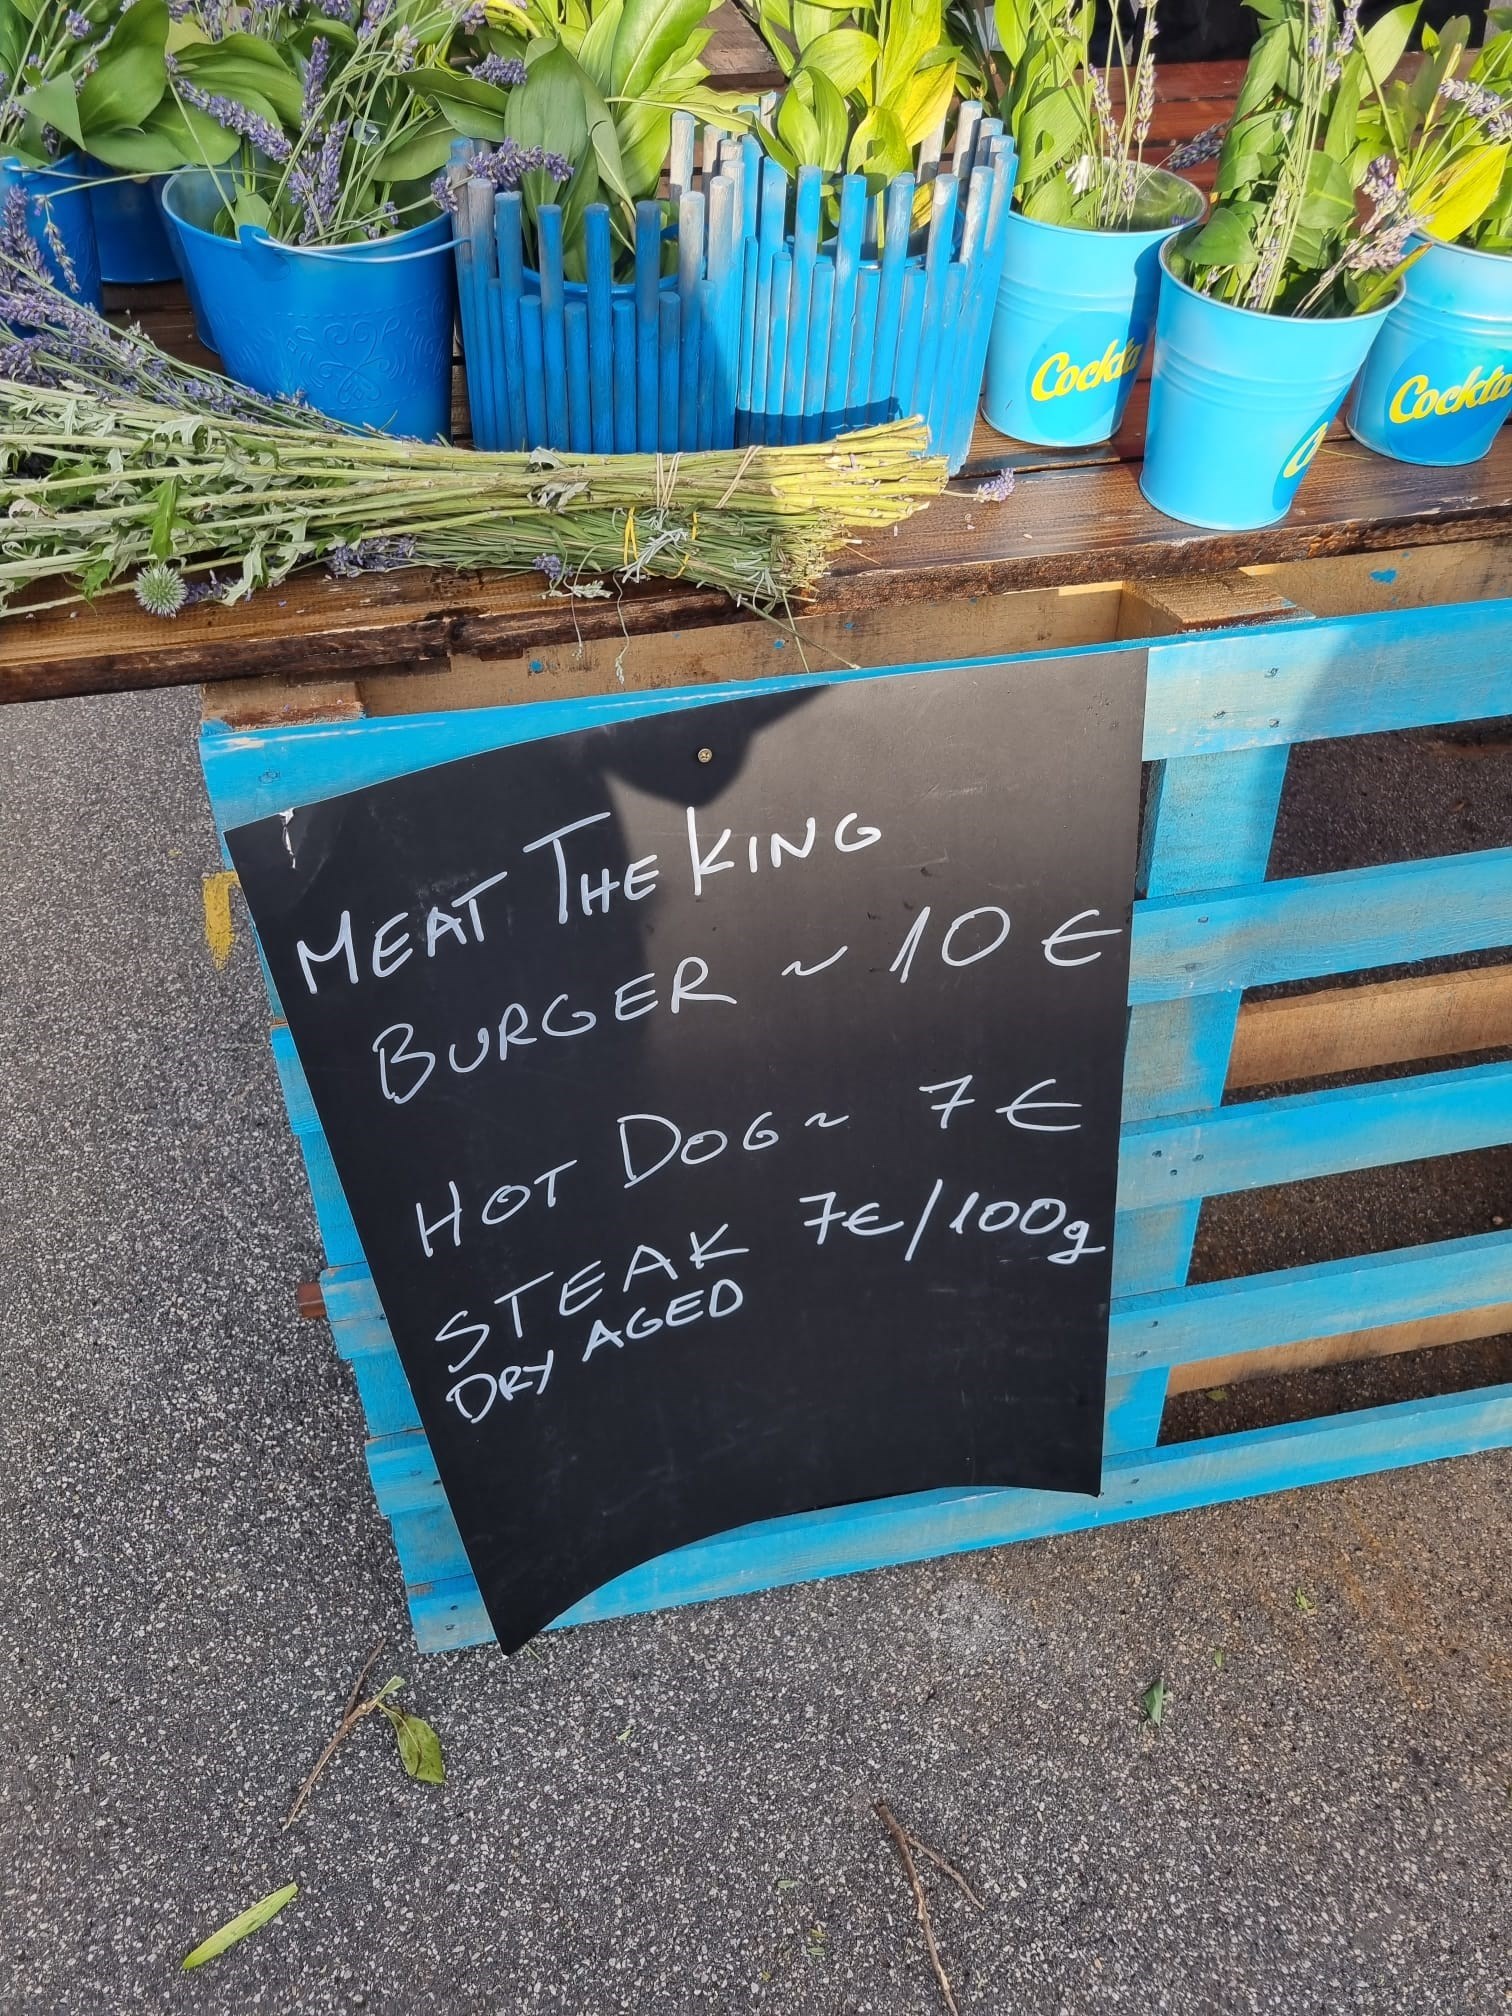 Cockta
Cockta
MEAT THE KING
BURGER ~ 10 €
HOT DOG ~ 7 €
STEAK 7€/100g
DRY AGED